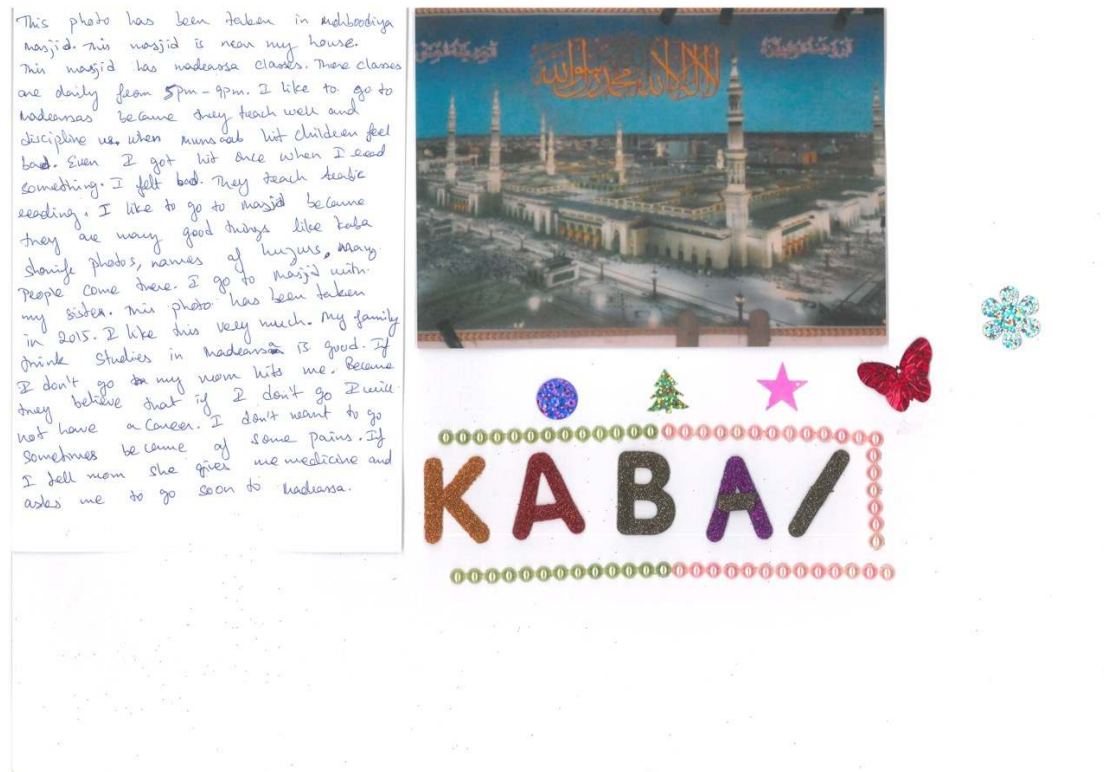 This photo has been taken in Mohboodiya
masjid. This masjid is near my house.
This masjid has madrassa classes. These classes
are daily from 5pm-9pm. I like to go to
madrassas because they teach well and
discipline us. when munsaab hit children feel
bad. Even I got hit once when I read
something. I felt bad. They teach Arabic
reading. I like to go to masjid because
they are many good things like kaba
sharife photos, names of huzurs, many
People come there. I go to masjid with
my sister. This photo has been taken
in 2015. I like this very much. My family
think studies in madrassa is good. If
I don't go my mom hits me. Because
they believe that if I don't go I will
not have a career. I don't want to go
sometimes because of some pains. If
I tell mom she gives me medicine and
asks me to go soon to madrassa.
لا اله الا الله محمد رسول الله
KABA/